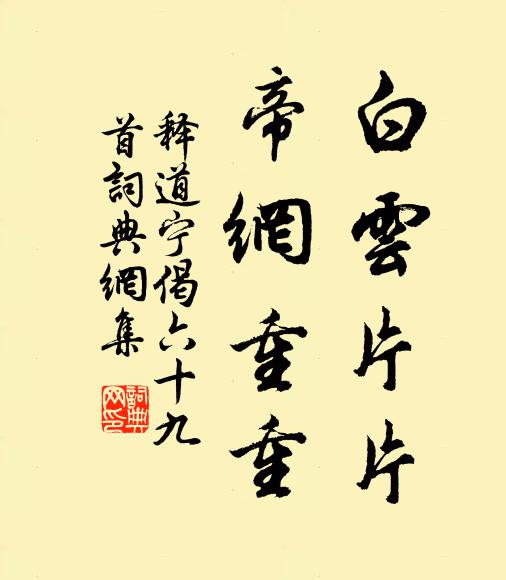 白雲片片
帝網重重
释道宁偈六十九
首詞典網集
詞典網印